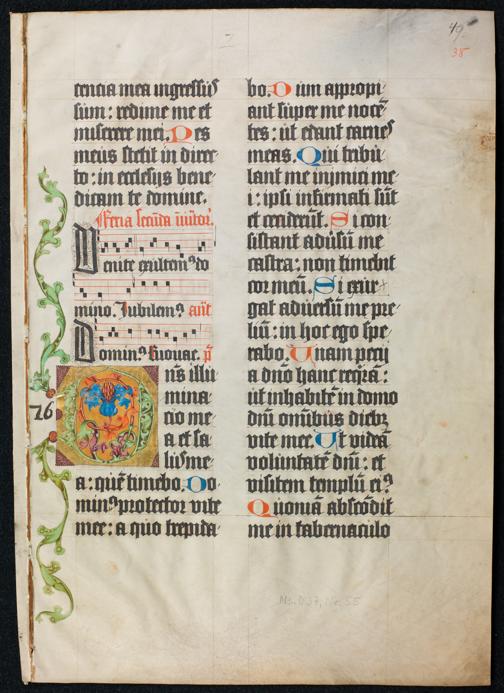 I
49
38
tencia mea ingressus
sum: redime me et
miserere mei. Pes
meus stetit in direc
to: in ecclesijs bene
dicam te domine.
Feria secūda
Uenite exultemꝰ do
mino. Jubilemꝰ añt
Dominꝰ Euouae. p̄
ñs illu
mina
tio me
a et sa
lusme
a: quē timebo. Do
minꝰ protector vite
mee: a quo trepida
16
bo. Dum appropi
ant super me nocē
tes: ut edant carnes
meas. Qui tribu
lant me inimici me
i: ipsi infirmati sūt
et ceciderūt. Si con
sistant adūsū me
castra: non timebit
cor meū. Si exur
gat adūersū me pre
liū: in hoc ego spe
rabo. Unam petij
a dño hanc reqrā:
ut inhabitē in domo
dñi omībus diebꝫ
vite mee. Ut videā
voluntatē dñi: et
visitem templū eiꝰ
Quoniā abscōdit
me in tabernaculo